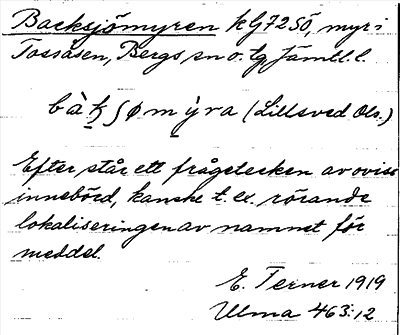 Backsjömyren kG72SÖ, myr i
Tossåsen, Bergs sn o. tg, Jämtl. l.
bàk̠ʃøm̠ỳra (Lillsved Ols.)
Efter står ett frågetecken av oviss
innebörd, kanske t. ex. rörande
lokaliseringen av namnet för
meddel.
E. Terner 1919
Ulma 463:12